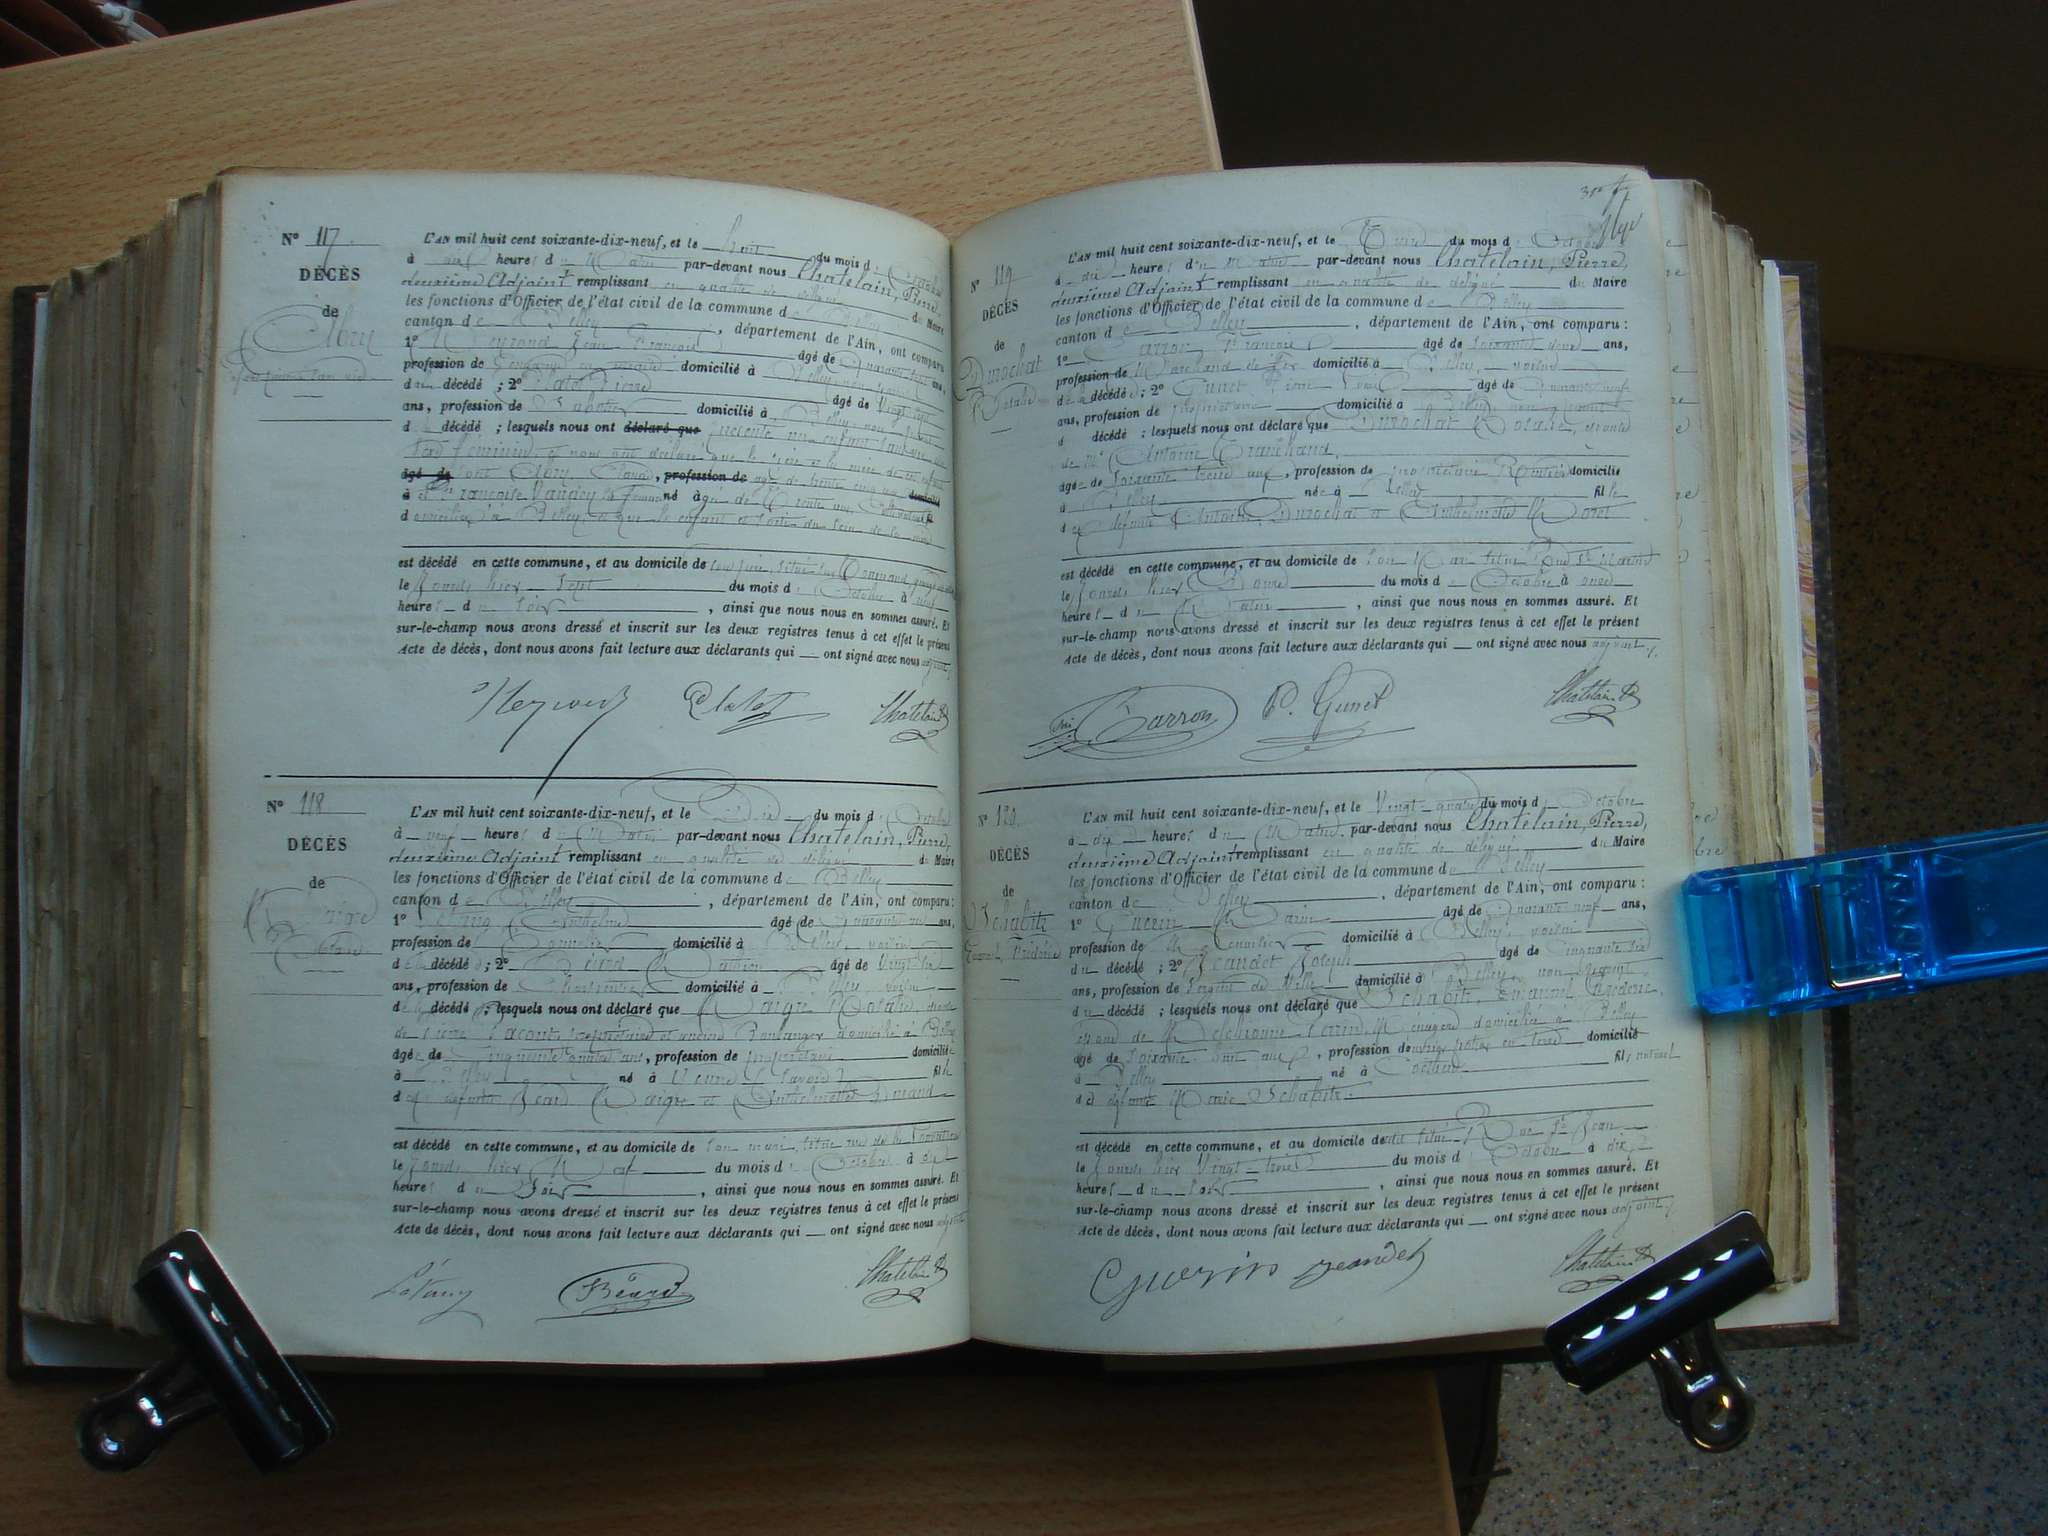 N° 117
DÉCÈS
de
Abry
L'AN mil huit cent soixante-dix-neuf, et le huit du mois d'Octobre
à dix heures du Matin par-devant nous Chatelain, Pierre,
deuxième Adjoint remplissant en qualité de délégué du Maire
les fonctions d'Officier de l'état civil de la commune de Belley
canton de Belley, département de l'Ain, ont comparu :
1° Jean François âgé de Quarante ans,
profession de domicilié à Belley non parent
du décédé ; 2° Clatot Pierre âgé de Vingt sept
ans, profession de Sabotier domicilié à Belley non parent
d décédé ; lesquels nous ont déclaré que présenté un enfant sans vie du
sexe féminin, et nous ont déclaré que le père et la mère de cet enfant
âgé de sont Abry Claude, profession de âgé de trente cinq ans domicilié
à et Françoise sa femme né âgée de Trente ans
domiciliés à Belley et que cet enfant est sorti du sein de sa mère
est décédé en cette commune, et au domicile de son père, situé
le jour d'hier Sept du mois d'Octobre à neuf
heures du soir, ainsi que nous nous en sommes assuré. Et
sur-le-champ nous avons dressé et inscrit sur les deux registres tenus à cet effet le présent
Acte de décès, dont nous avons fait lecture aux déclarants qui ont signé avec nous adjoint
Clatot Chatelain P
N° 118
DÉCÈS
de
Maigre
Rosalie
L'AN mil huit cent soixante-dix-neuf, et le Dix du mois d'Octobre
à neuf heures du Matin par-devant nous Chatelain, Pierre,
deuxième Adjoint remplissant en qualité de délégué du Maire
les fonctions d'Officier de l'état civil de la commune de Belley
canton de Belley, département de l'Ain, ont comparu :
1° Létang Anthelme âgé de Quarante ans,
profession de Tonnelier domicilié à Belley, voisin
de la décédée ; 2° Béard âgé de Vingt
ans, profession de Charpentier domicilié à Belley voisin
de la décédée ; lesquels nous ont déclaré que Maigre Rosalie, épouse
de Pierre propriétaire et ancien Boulanger domicilié à Belley
âgée de Cinquante quatre ans, profession de propriétaire domiciliée
à Belley né à Yenne (Savoie) fille
des défunts Jean Maigre et Anthelmette Durand
est décédé en cette commune, et au domicile de son mari, situé rue de la
le jour d'hier Neuf du mois d'Octobre à
heures du Soir, ainsi que nous nous en sommes assuré. Et
sur-le-champ nous avons dressé et inscrit sur les deux registres tenus à cet effet le présent
Acte de décès, dont nous avons fait lecture aux déclarants qui ont signé avec nous adjoint
Létang Béard Chatelain P
N° 119
DÉCÈS
de
Durochat
Rosalie
L'AN mil huit cent soixante-dix-neuf, et le Treize du mois d'Octobre
à dix heures du Matin par-devant nous Chatelain, Pierre,
deuxième Adjoint remplissant en qualité de délégué du Maire
les fonctions d'Officier de l'état civil de la commune de Belley
canton de Belley, département de l'Ain, ont comparu :
1° Carron François âgé de soixante douze ans,
profession de Marchand de fer domicilié à Belley, voisin
de la décédée ; 2° Gunet Pierre âgé de Quarante neuf
ans, profession de propriétaire domicilié à Belley non parent
d décédé ; lesquels nous ont déclaré que Durochat Rosalie, épouse
de Mr Antoine Tranchand,
âgée de Soixante treize ans, profession de propriétaire Rentière domicilié
à Belley née à Belley fille
des défunts Antoine Durochat et Anthelmette Moret
est décédé en cette commune, et au domicile de son Mari situé Rue St Martin
le jour d'hier Douze du mois d'Octobre à onze
heures du Matin, ainsi que nous nous en sommes assuré. Et
sur-le-champ nous avons dressé et inscrit sur les deux registres tenus à cet effet le présent
Acte de décès, dont nous avons fait lecture aux déclarants qui ont signé avec nous adjoint
Carron P. Gunet Chatelain P
N° 120
DÉCÈS
de
Schabitz
Emanuel Frédéric
L'AN mil huit cent soixante-dix-neuf, et le Vingt quatre du mois d'Octobre
à dix heures du Matin, par-devant nous Chatelain, Pierre,
deuxième Adjoint remplissant en qualité de délégué du Maire
les fonctions d'Officier de l'état civil de la commune de Belley
canton de Belley, département de l'Ain, ont comparu :
1° Guerin Marin âgé de Quarante neuf ans,
profession de Menuisier domicilié à Belley, voisin
du décédé ; 2° Jeandet Joseph âgé de Cinquante six
ans, profession de Sergent de Ville domicilié à Belley, non parent
du décédé ; lesquels nous ont déclaré que Schabitz, Emanuel Frédéric,
époux de Ménagère domiciliée à Belley
âgé de soixante huit ans, profession de ouvrier potier en terre domicilié
à Belley né à fils naturel
de défunte Marie Schabitz.
est décédé en cette commune, et au domicile de situé Rue St Jean
le jour d'hier Vingt trois du mois d'Octobre à dix
heures du soir, ainsi que nous nous en sommes assuré. Et
sur-le-champ nous avons dressé et inscrit sur les deux registres tenus à cet effet le présent
Acte de décès, dont nous avons fait lecture aux déclarants qui ont signé avec nous adjoint
Guerin Jeandet Chatelain P